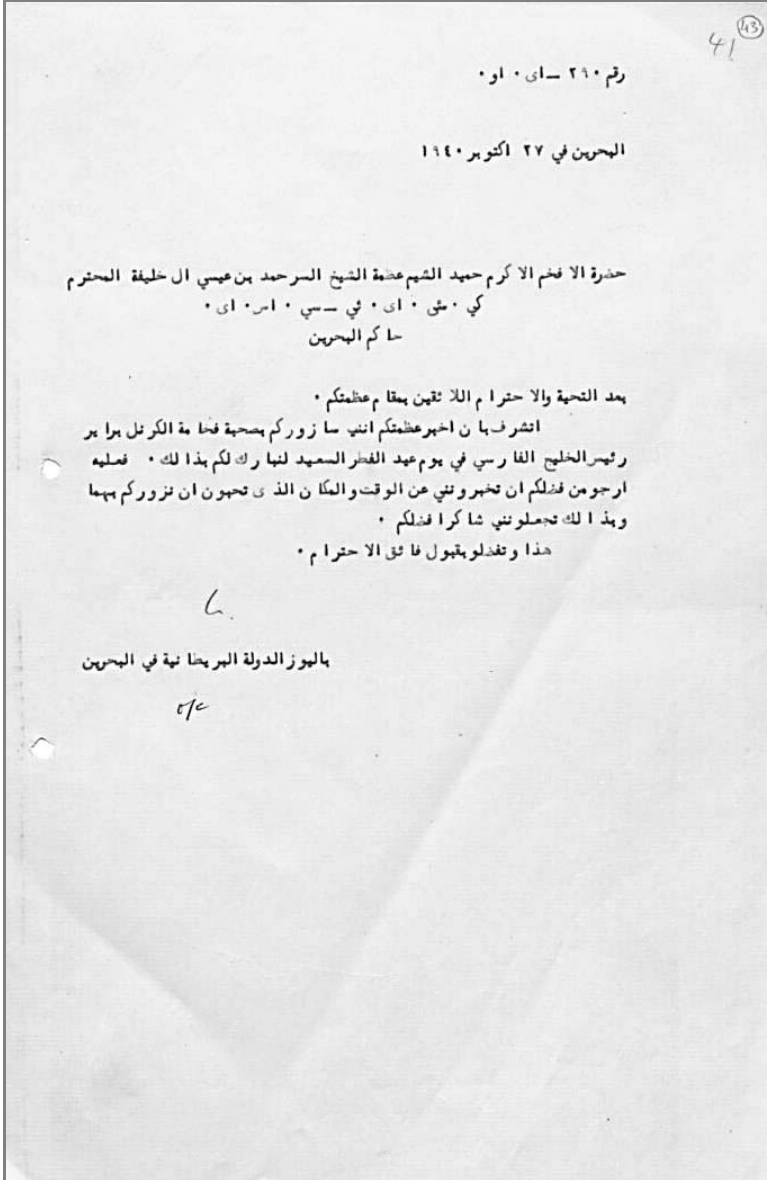 43
41
رقم ٢٩٠ ــ اى ٠ او ٠
البحرين في ٢٧ اكتوبر ١٩٤٠
حضرة الافخم الاكرم حميد الشيم عظمة الشيخ السر حمد بن عيسي ال خليفة المحترم
كي ٠ سي ٠ اى ٠ ئي ــ سي ٠ اس ٠ اى ٠
حاكم البحرين
بعد التحية والاحترام اللائقين بمقام عظمتكم ٠
اتشرف بان اخبر عظمتكم انني سازوركم بصحبة فخامة الكرنل براير
رئيس الخليج الفارسي في يوم عيد الفطر السعيد لنبارك لكم بذالك ٠ فعليه
ارجو من فضلكم ان تخبرونني عن الوقت والمكان الذى تحبون ان نزوركم بهما
وبذالك تجعلونني شاكرا فضلكم ٠
هذا وتفضلو بقبول فائق الاحترام ٠
باليوز الدولة البريطانية في البحرين
o/c